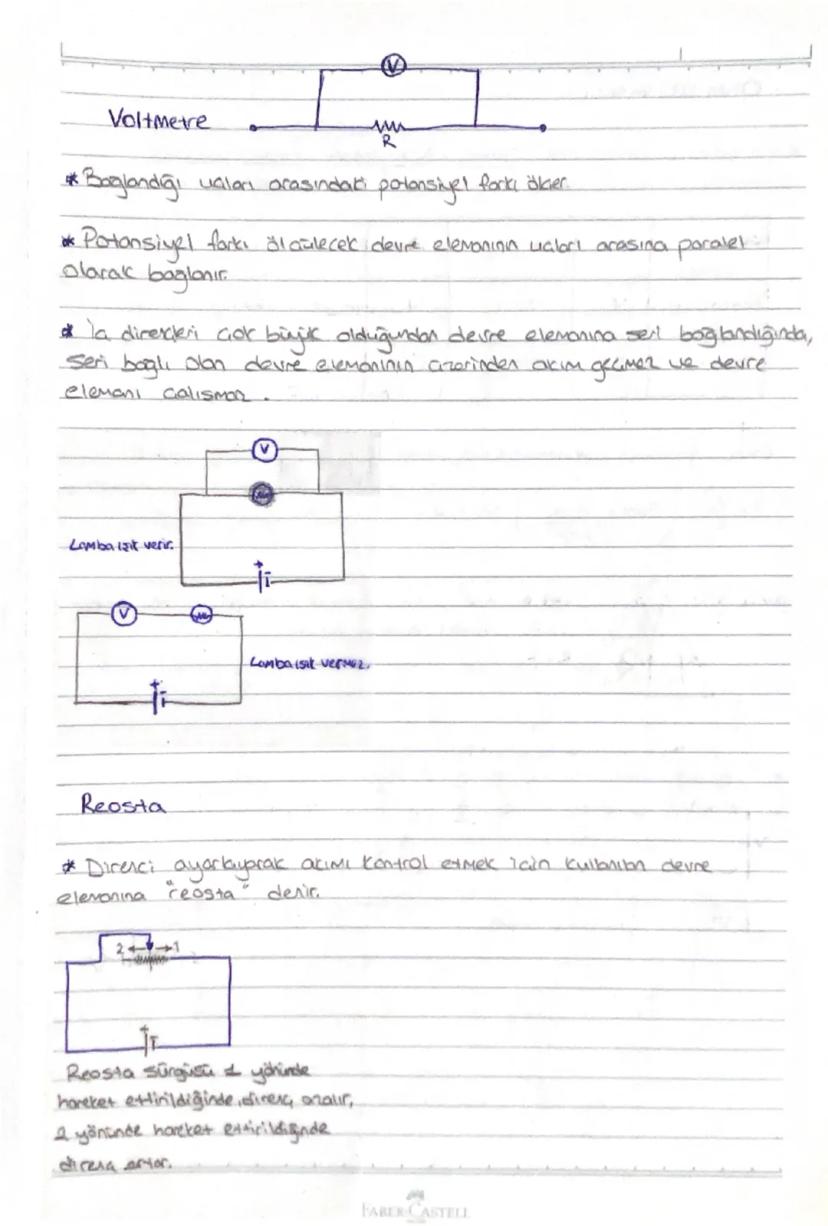 V
Voltmetre
R
* Bağlandığı uçları arasındaki potansiyel farkı ölçer.
* Potansiyel farkı ölçülecek devre elemanının uçları arasına paralel
olarak bağlanır.
* İç dirençleri çok büyük olduğundan devre elemanına seri bağlandığında,
seri bağlı olan devre elemanının üzerinden akım geçmez ve devre
elemanı çalışmaz.
V
Lamba ışık verir.
+ -
V
Lamba ışık vermez.
+ -
Reosta
* Direnci ayarlayarak akımı kontrol etmek için kullanılan devre
elemanına "reosta" denir.
2 1
+ -
Reosta sürgüsü 1 yönünde
hareket ettirildiğinde, direnç azalır,
2 yönünde hareket ettirildiğinde
direnç artar.
FABER-CASTELL